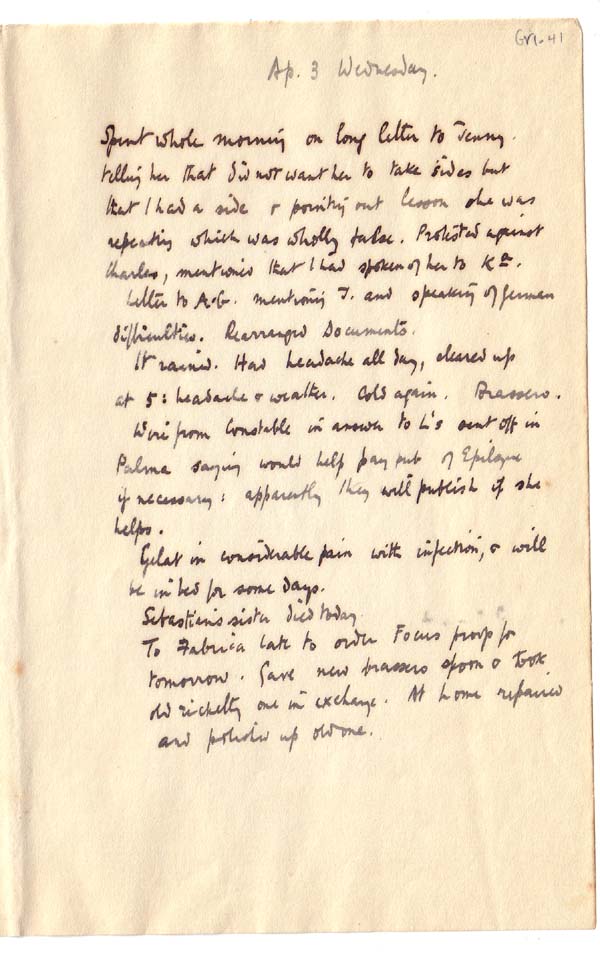 GR1-41
Ap. 3 Wednesday.
Spent whole morning on long letter to Jenny.
telling her that did not want her to take sides but
that I had a side & pointing out lesson she was
repeating which was wholly false. Protested against
Charles, mentioned that I had spoken of her to Ka.
Letter to A.G. mentioning J. and speaking of german
difficulties. Rearranged Documents.
It rained. Had headache all day, cleared up
at 5: headache & weather. Cold again. Brassero.
Wire from Constable in answer to L's sent off in
Palma saying would help pay pub of Epilogue
if necessary: apparently they will publish if she
helps.
Gelat in considerable pain with infection, & will
be in bed for some days.
Sebastian's sister died today
To Fabrica late to order Focus proofs for
tomorrow. Gave new brassero spoon & took
old rickety one in exchange. At home repaired
and polished up old one.